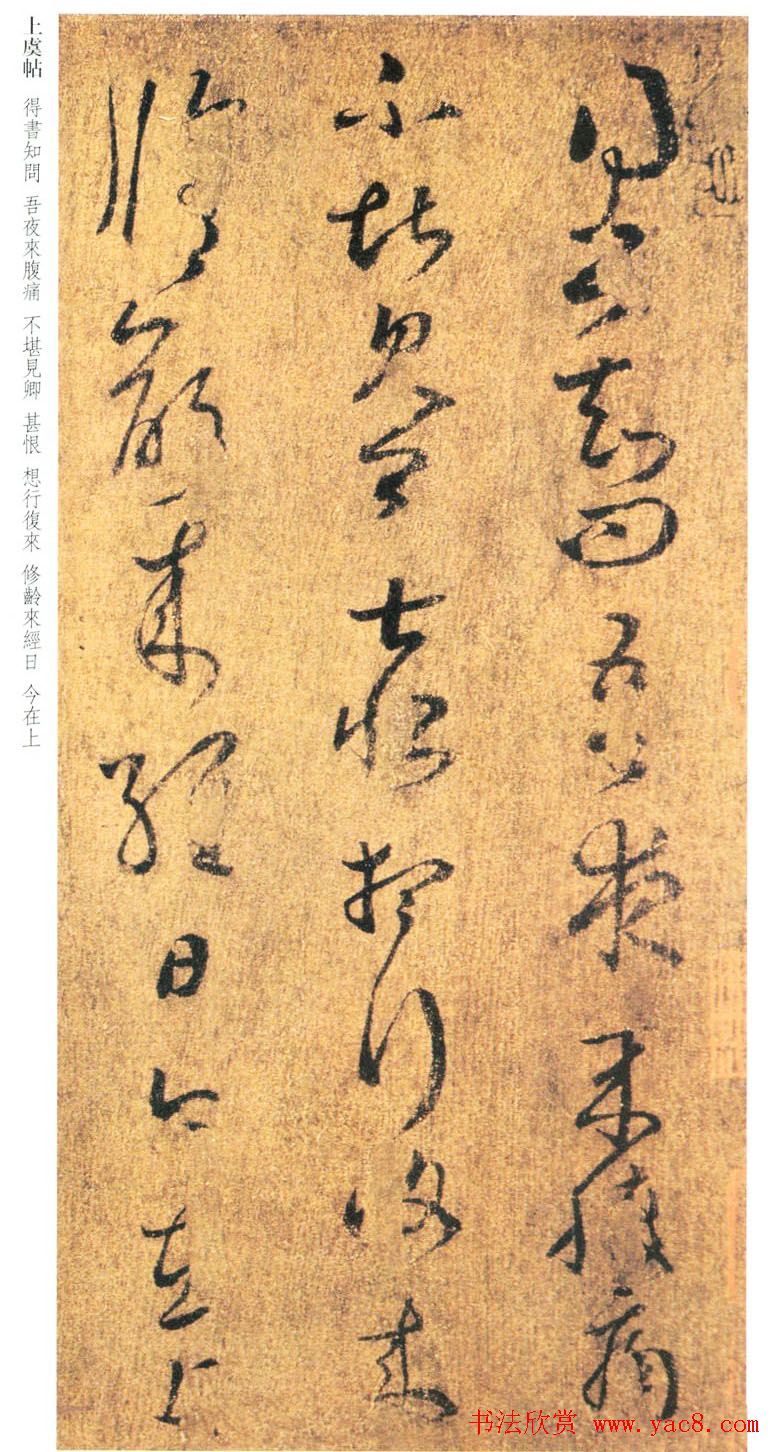 得書知問吾夜來腹痛
不堪見卿甚恨想行復來
修齡來經日今在上
上虞帖 得書知問 吾夜來腹痛 不堪見卿 甚恨 想行復來 修齡來經日 今在上
书法欣赏 www.yac8.com